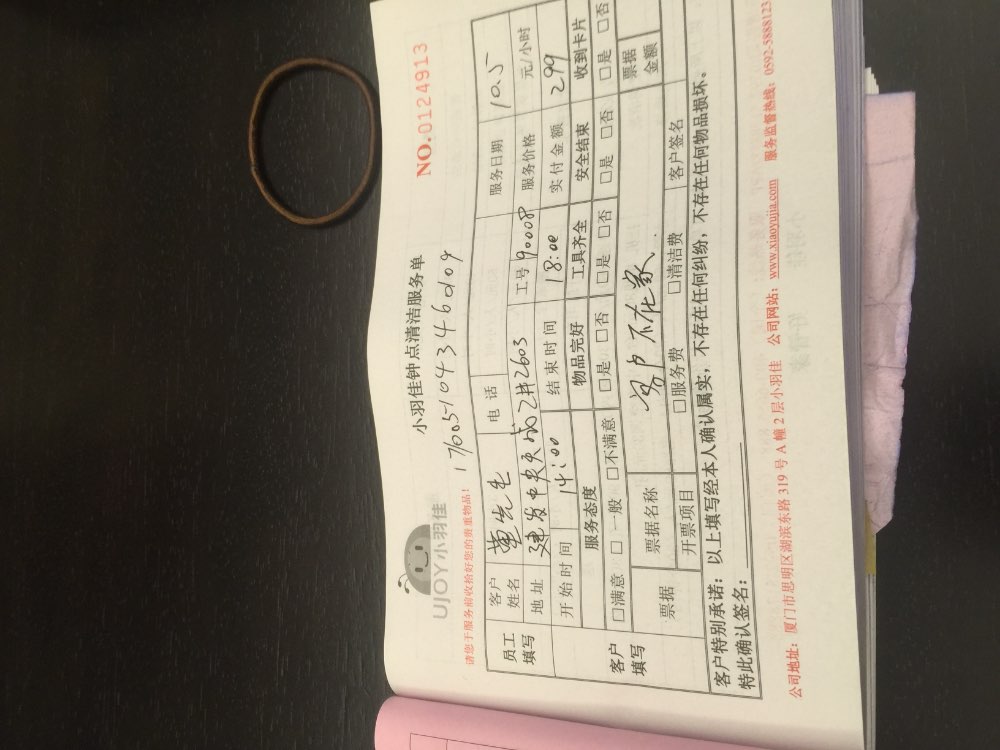 UJOY小羽佳
小羽佳钟点清洁服务单
NO.0124913
请您于服务前收拾好您的贵重物品!
17605104346dog
员工填写
客户姓名 董先生 电话 服务日期 10.5
地址 建发中央天成乙井2603 工号 90008 服务价格 元/小时
开始时间 14:00 结束时间 18:00 实付金额 299
客户填写
服务态度 物品完好 工具齐全 安全结束 收到卡片
□满意 □一般 □不满意 □是 □否 □是 □否 □是 □否 □是 □否
票据 票据名称 客户不在家. 票据金额
开票项目 □服务费 □清洁费 客户签名
客户特别承诺:以上填写经本人确认属实,不存在任何纠纷,不存在任何物品损坏。
特此确认签名:
公司地址:厦门市思明区湖滨东路319号A幢2层小羽佳 公司网站:www.xiaoyujia.com 服务监督热线:0592-5888123